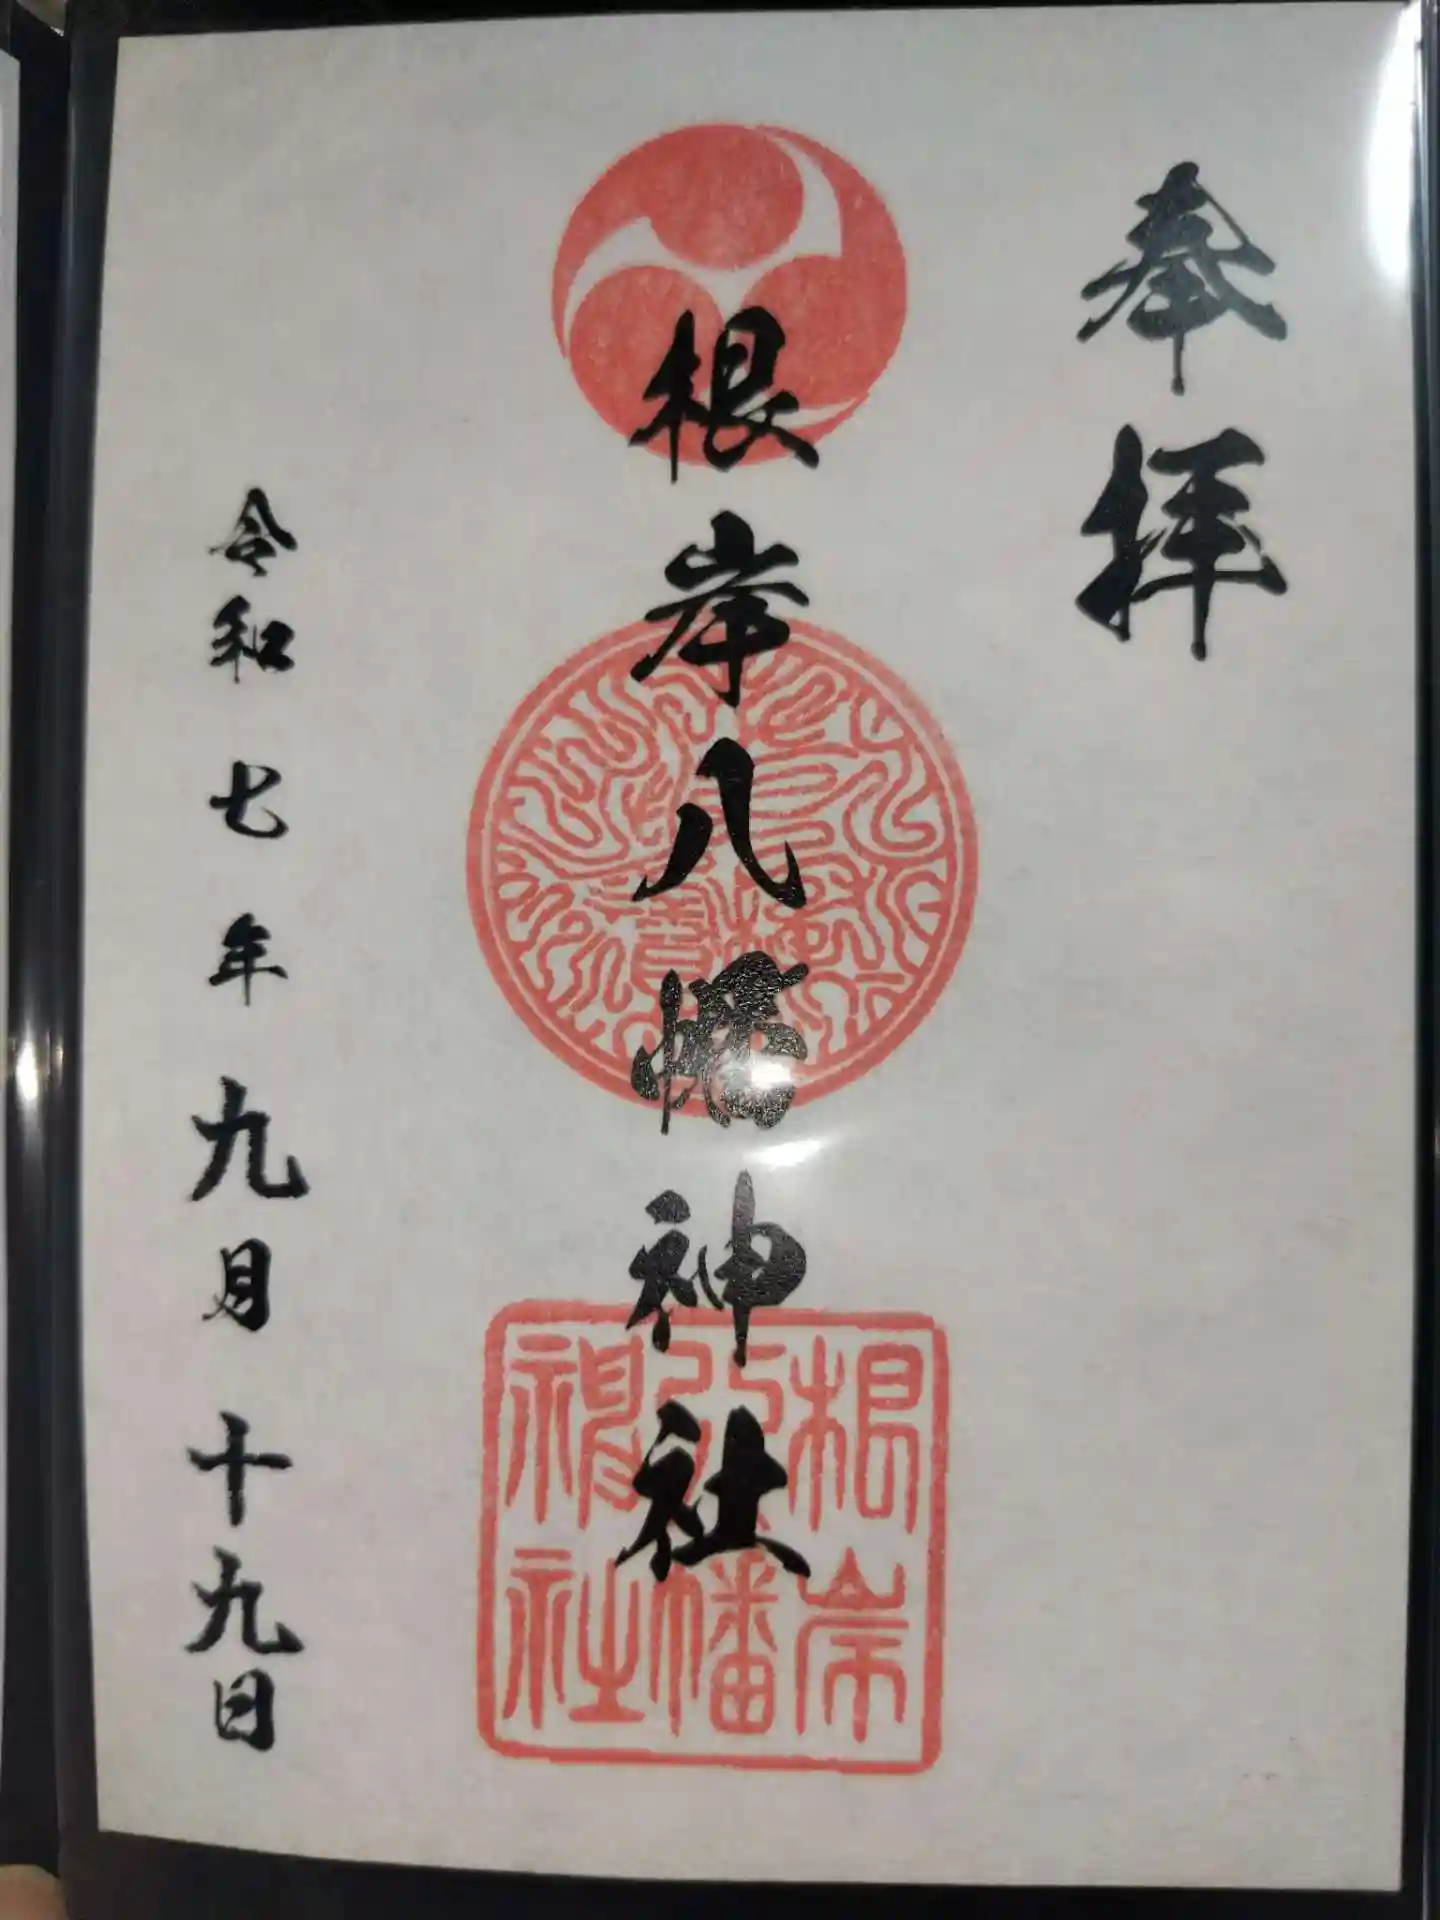 奉拝
根岸八幡神社
令和七年九月十九日
根岸
八幡
神社